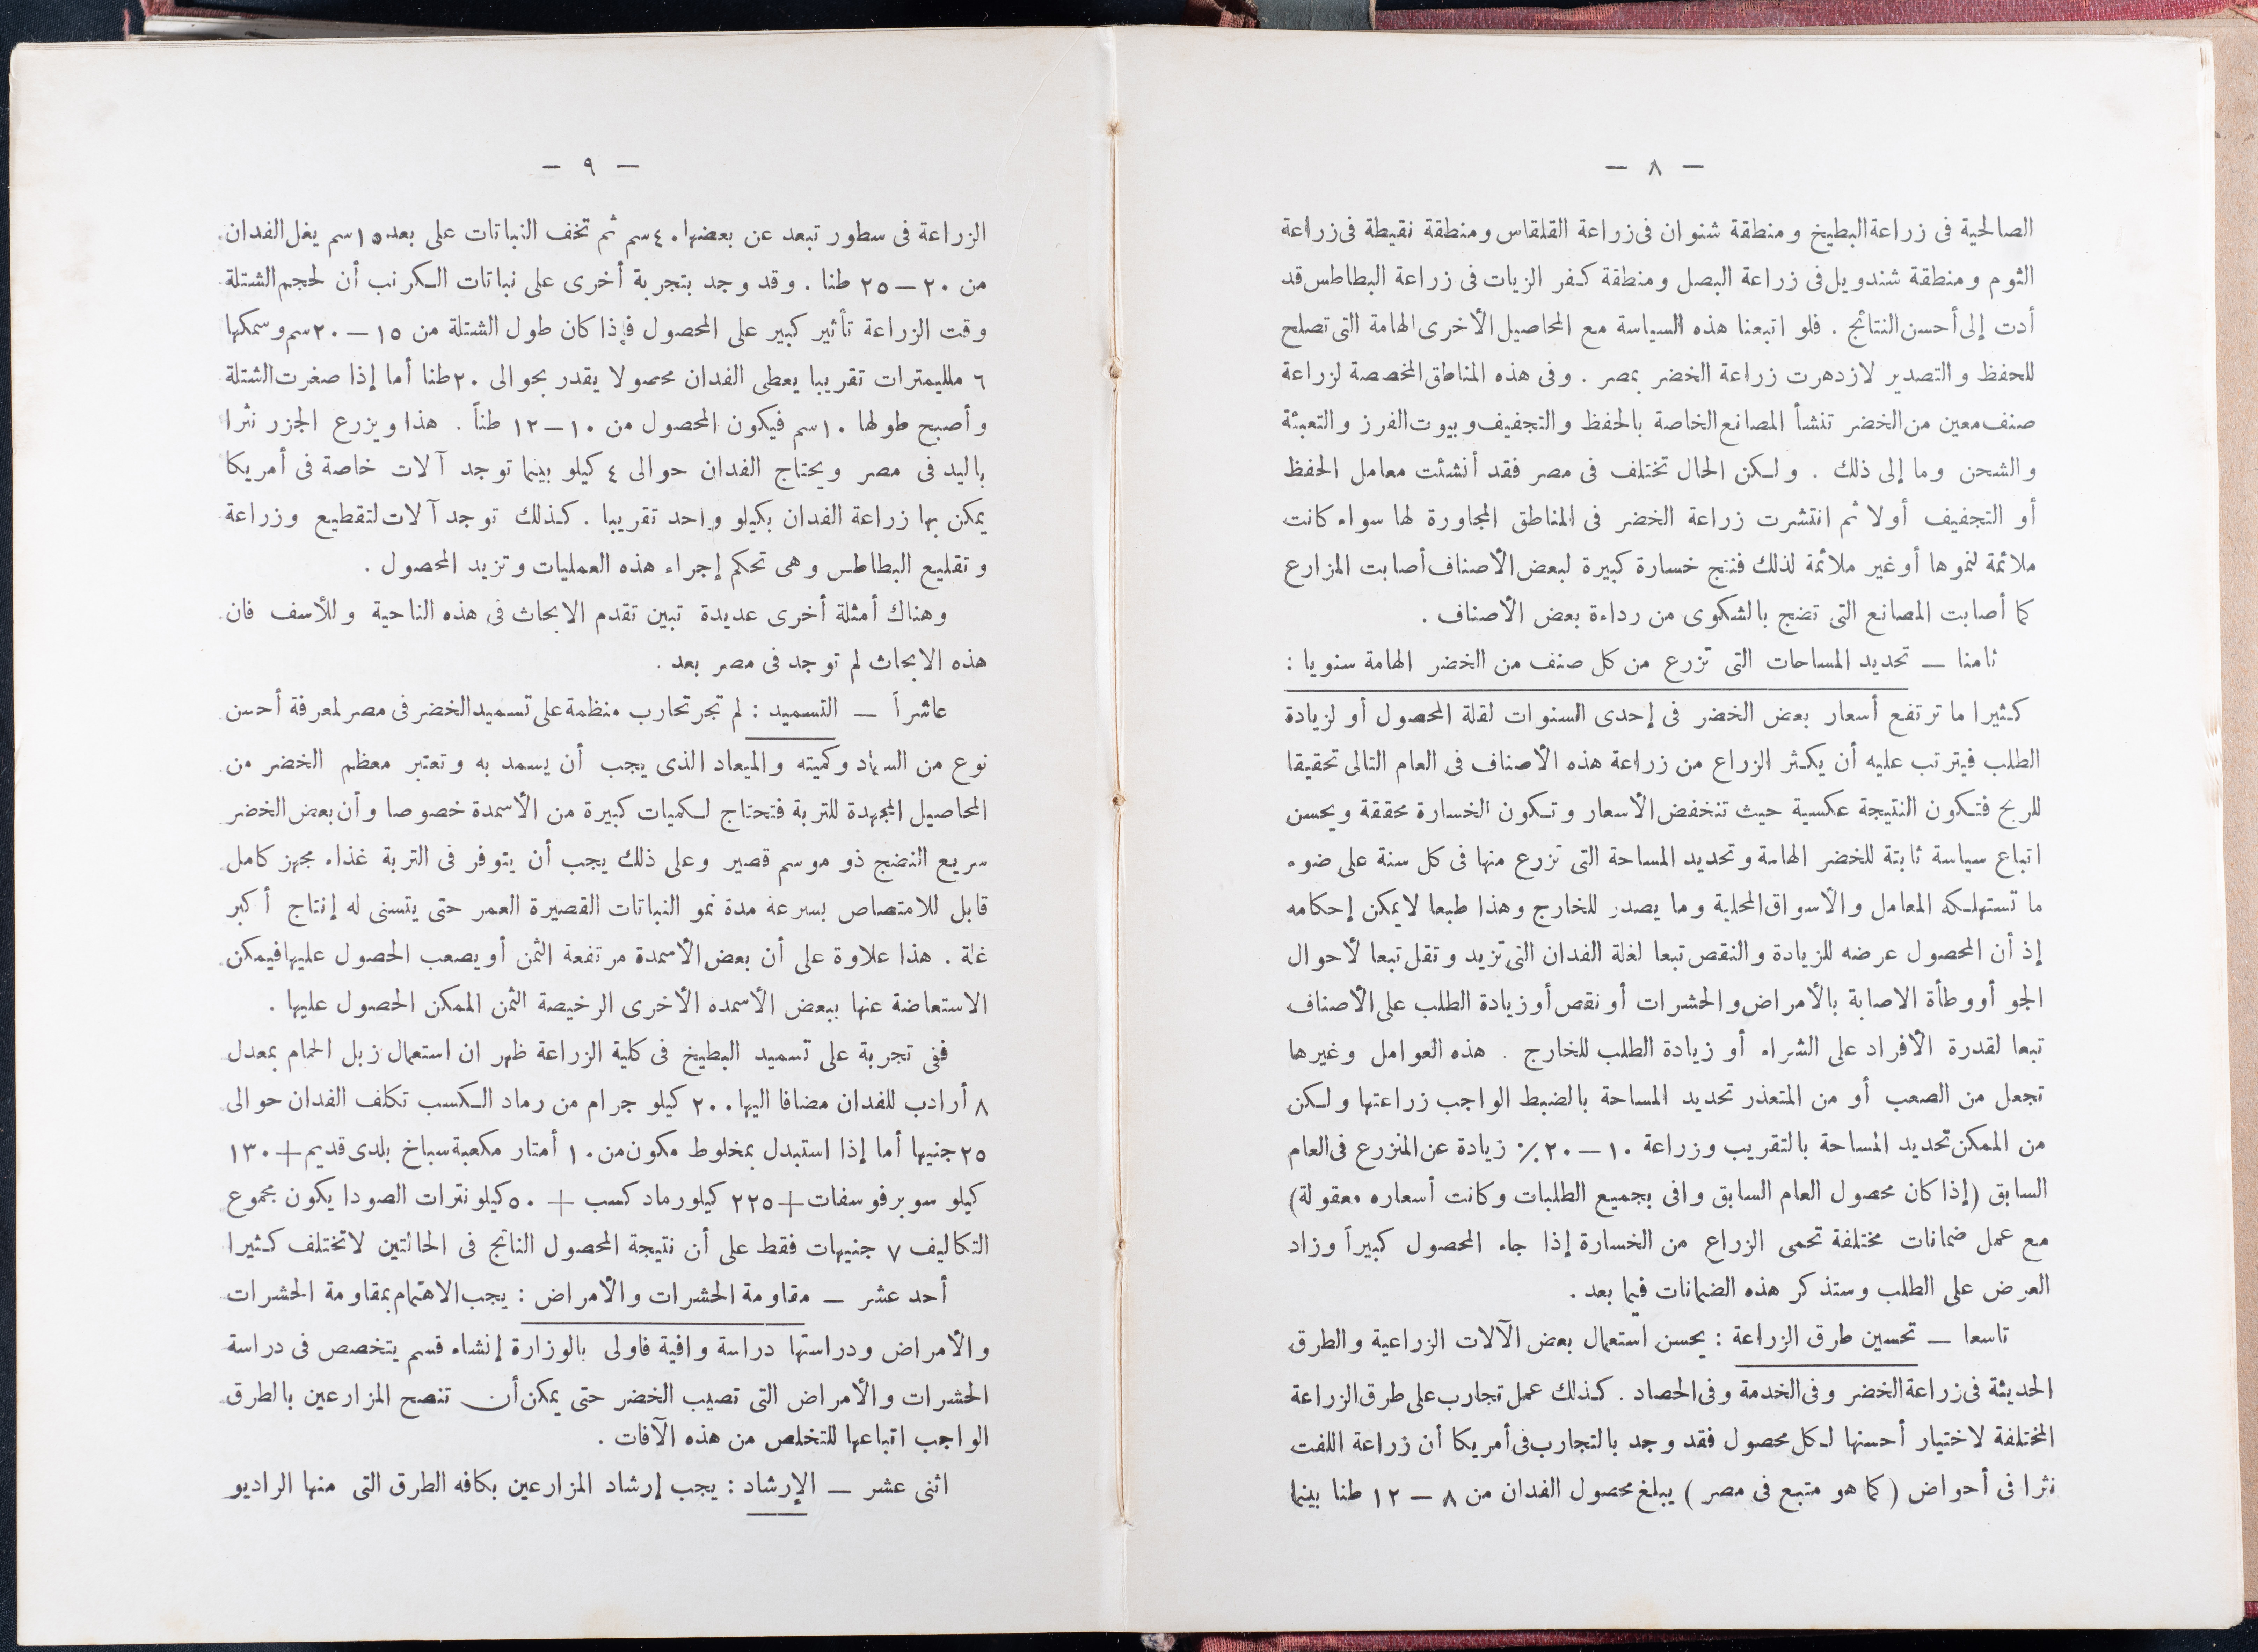 — ٨ —
الصالحية فى زراعة البطيخ ومنطقة شنوان فى زراعة القلقاس ومنطقة نقيطة فى زراعة
الثوم ومنطقة شندويل فى زراعة البصل ومنطقة كفر الزيات فى زراعة البطاطس قد
أدت إلى أحسن النتائج . فلو اتبعنا هذه السياسة مع المحاصيل الأخرى الهامة التى تصلح
للحفظ والتصدير لازدهرت زراعة الخضر بمصر . وفى هذه المناطق المخصصة لزراعة
صنف معين من الخضر تنشأ المصانع الخاصة بالحفظ والتجفيف وبيوت الفرز والتعبئة
والشحن وما إلى ذلك . ولكن الحال تختلف فى مصر فقد أنشئت معامل الحفظ
أو التجفيف أولا ثم انتشرت زراعة الخضر فى المناطق المجاورة لها سواء كانت
ملائمة لنموها أو غير ملائمة لذلك فنتج خسارة كبيرة لبعض الأصناف أصابت المزارع
كما أصابت المصانع التى تضج بالشكوى من رداءة بعض الأصناف .
ثامنا — تحديد المساحات التى تزرع من كل صنف من الخضر الهامة سنويا :
كثيرا ما ترتفع أسعار بعض الخضر فى إحدى السنوات لقلة المحصول أو لزيادة
الطلب فيترتب عليه أن يكثر الزراع من زراعة هذه الأصناف فى العام التالى تحقيقا
للربح فتكون النتيجة عكسية حيث تنخفض الأسعار وتكون الخسارة محققة ويحسن
اتباع سياسة ثابتة للخضر الهامة وتحديد المساحة التى تزرع منها فى كل سنة على ضوء
ما تستهلكه المعامل والأسواق المحلية وما يصدر للخارج وهذا طبعا لا يمكن إحكامه
إذ أن المحصول عرضه للزيادة والنقص تبعا لغلة الفدان التى تزيد وتقل تبعا لأحوال
الجو أو وطأة الاصابة بالأمراض والحشرات أو نقص أو زيادة الطلب على الأصناف
تبعا لقدرة الأفراد على الشراء أو زيادة الطلب للخارج . هذه العوامل وغيرها
تجعل من الصعب أو من المتعذر تحديد المساحة بالضبط الواجب زراعتها ولكن
من الممكن تحديد المساحة بالتقريب وزراعة ١٠ — ٢٠٪ زيادة عن المنزرع فى العام
السابق (إذا كان محصول العام السابق وافى بجميع الطلبات وكانت أسعاره معقولة)
مع عمل ضمانات مختلفة تحمى الزراع من الخسارة إذا جاء المحصول كبيراً وزاد
العرض على الطلب وستذكر هذه الضمانات فيما بعد .
تاسعا — تحسين طرق الزراعة : يحسن استعمال بعض الآلات الزراعية والطرق
الحديثة فى زراعة الخضر وفى الخدمة وفى الحصاد . كذلك عمل تجارب على طرق الزراعة
المختلفة لاختيار أحسنها لكل محصول فقد وجد بالتجارب فى أمريكا أن زراعة اللفت
نثرا فى أحواض ( كما هو متبع فى مصر ) يبلغ محصول الفدان من ٨ — ١٢ طنا بينما
— ٩ —
الزراعة فى سطور تبعد عن بعضها ٤٠ سم ثم تخف النباتات على بعد ١٥ سم يغل الفدان
من ٢٠ — ٢٥ طنا . وقد وجد بتجربة أخرى على نباتات الكرنب أن لحجم الشتلة
وقت الزراعة تأثير كبير على المحصول فإذا كان طول الشتلة من ١٥ — ٢٠ سم وسمكها
٦ ملليمترات تقريبا يعطى الفدان محصولا يقدر بحوالى ٢٠ طنا أما إذا صغرت الشتلة
وأصبح طولها ١٠ سم فيكون المحصول من ١٠ — ١٢ طناً . هذا ويزرع الجزر نثرا
باليد فى مصر ويحتاج الفدان حوالى ٤ كيلو بينما توجد آلات خاصة فى أمريكا
يمكن بها زراعة الفدان بكيلو واحد تقريبا . كذلك توجد آلات لتقطيع وزراعة
وتقليع البطاطس وهى تحكم إجراء هذه العمليات وتزيد المحصول .
وهناك أمثلة أخرى عديدة تبين تقدم الابحاث فى هذه الناحية وللأسف فان
هذه الابحاث لم توجد فى مصر بعد .
عاشراً — التسميد : لم تجر تحارب منظمة على تسميد الخضر فى مصر لمعرفة أحسن
نوع من السماد وكميته والميعاد الذى يجب أن يسمد به وتعتبر معظم الخضر من
المحاصيل المجهدة للتربة فتحتاج لكميات كبيرة من الأسمدة خصوصا وأن بعض الخضر
سريع النضج ذو موسم قصير وعلى ذلك يجب أن يتوفر فى التربة غذاء مجهز كامل
قابل للامتصاص بسرعة مدة نمو النباتات القصيرة العمر حتى يتسنى له إنتاج أكبر
غلة . هذا علاوة على أن بعض الأسمدة مرتفعة الثمن أو يصعب الحصول عليها فيمكن
الاستعاضة عنها ببعض الأسمده الأخرى الرخيصة الثمن الممكن الحصول عليها .
ففى تجربة على تسميد البطيخ فى كلية الزراعة ظهر ان استعمال زبل الحمام بمعدل
٨ أرادب للفدان مضافا اليها ٢٠٠ كيلو جرام من رماد الكسب تكلف الفدان حوالى
٢٥ جنيها أما إذا استبدل بمخلوط مكون من ١٠ أمتار مكعبة سباخ بلدى قديم + ١٣٠
كيلو سوبر فوسفات + ٢٢٥ كيلو رماد كسب + ٥٠ كيلو نترات الصودا يكون مجموع
التكاليف ٧ جنيهات فقط على أن نتيجة المحصول الناتج فى الحالتين لا تختلف كثيرا
أحد عشر — مقاومة الحشرات والأمراض : يجب الاهتمام بمقاومة الحشرات
والأمراض ودراستها دراسة وافية فاولى بالوزارة إنشاء قسم يتخصص فى دراسة
الحشرات والأمراض التى تصيب الخضر حتى يمكن أن تنصح المزارعين بالطرق
الواجب اتباعها للتخلص من هذه الآفات .
اثنى عشر — الإرشاد : يجب إرشاد المزارعين بكافه الطرق التى منها الراديو